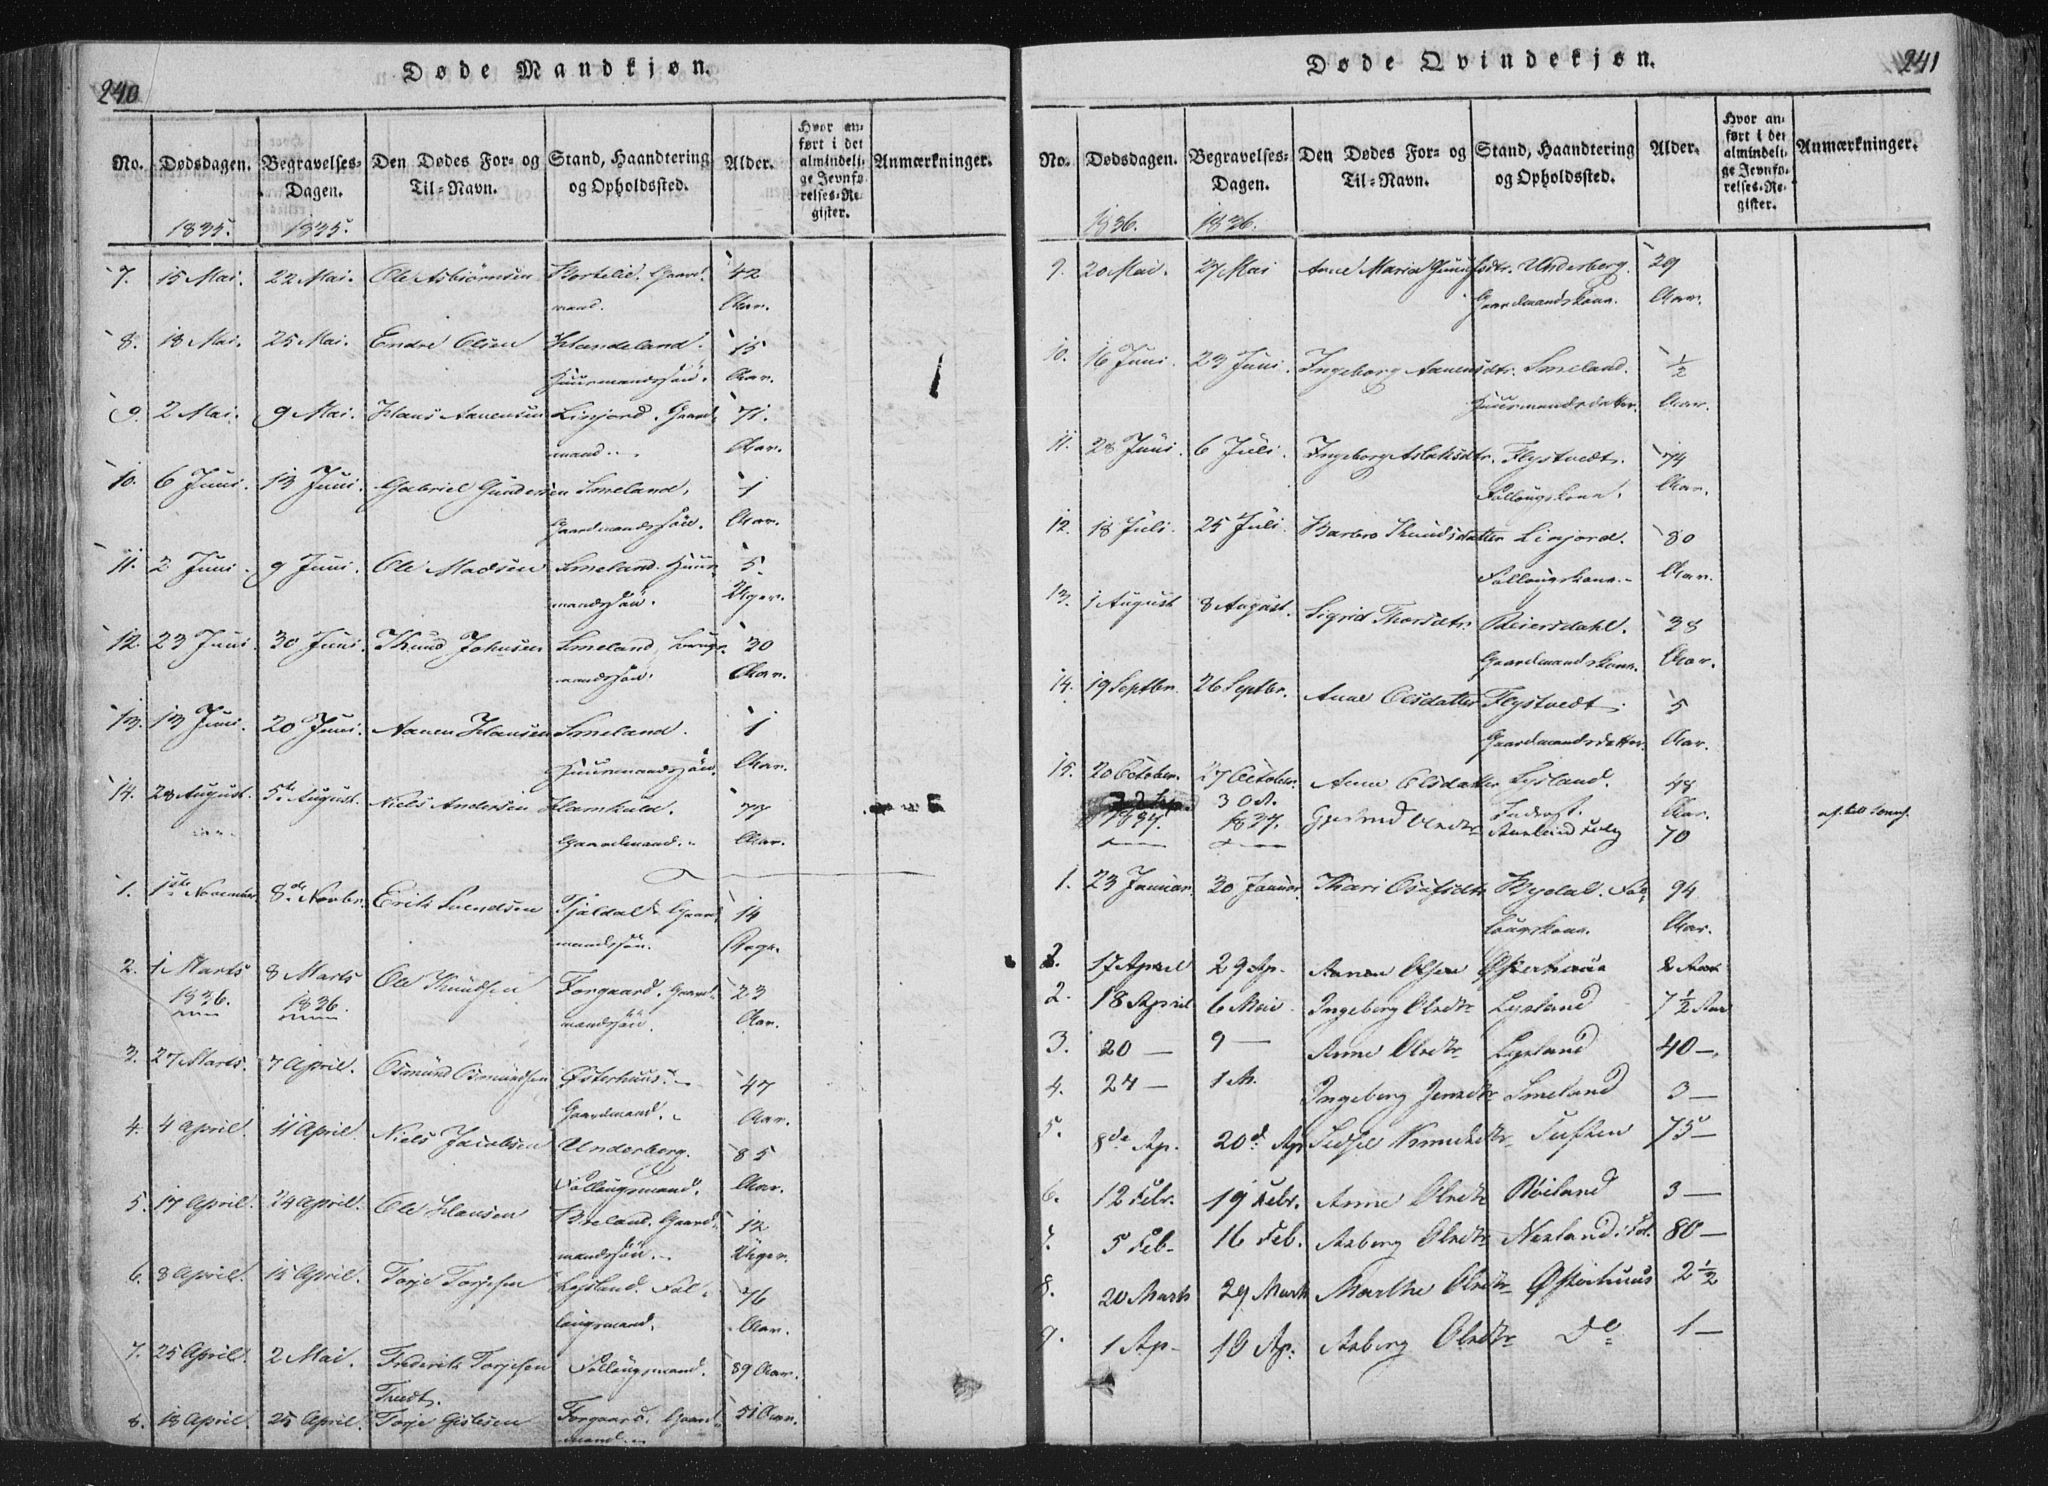 240
Døde Mandkjøn.
No. Dødsdagen. Begravelses-Dagen. Den Dødes For- og Til-Navn. Stand, Haandtering og Opholdssted. Alder. Hvor anført i det almindelige Jevnførelses-Register. Anmærkninger.
1835. 1835.
7. 15 Mai. 22 Mai. Ole Asbiørnsen Gaard- 42
mand. Aar.
8. 18 Mai. 25 Mai. Endre Olsen Haadeland. 15
Huusmandssøn. Aar.
9. 2 Mai. 9 Mai. Hans Aanensen Linjord. Gaard- 71.
mand. Aar.
10. 6 Juni. 13 Juni. Gabriel Gundersen Smeland, 1
Gaardmandssøn. Aar.
11. 2 Juni. 9 Juni. Ole Madsen Smeland. Huus- 5.
mandssøn. Uger.
12. 23 Juni. 30 Juni. Knud Johnsen Smeland, 30
mandssøn. Aar.
13. 13 Juni. 20 Juni. Aanen Hansen Smeland. 1
Huusmandssøn. Aar.
14. 28 August. 5te August. Niels Andersen 77
Gaardmand. Aar.
1. 1ste November. 8de Novbr. Erik Svendsen Fjeldal. Gaard- 14
mandssøn. Dage.
2. 1 Marts 8 Marts Ole Knudsen Forgaard. Gaard- 23
1836. 1836. mandssøn. Aar.
3. 27 Marts. 7 April. Osmund Osmundsen Østerhuus. 47
Gaardmand. Aar.
4. 4 April. 11 April. Niels Jacobsen Underberg. 85
Follougsmand. Aar.
5. 17 April. 24 April. Ole Hansen Gaard- 12
mandssøn. Uger.
6. 8 April. 15 April. Torje Torjesen Lysland. Fol- 76
lougsmand. Aar.
7. 25 April. 2 Mai. Frederik Torjesen Follougsmand. 89 Aar.
Tvedt.
8. 18 April. 25 April. Torje Gislesen Forgaard. Gaard- 51 Aar.
mand.
241
Døde Qvindekjøn.
No. Dødsdagen. Begravelses-Dagen. Den Dødes For- og Til-Navn. Stand, Haandtering og Opholdssted. Alder. Hvor anført i det almindelige Jevnførelses-Register. Anmærkninger.
1836. 1836.
9. 20 Mai. 27 Mai Anne Maria Underberg. 29
Gaardmandskone. Aar.
10. 16 Juni. 23 Juni. Ingeborg Aanensdtr. Smeland. 1/2
Huusmandsdatter. Aar.
11. 28 Juni. 6 Juli. Ingeborg Aslaksdtr. Flystvedt. 74
Follougskone. Aar.
12. 18 Juli. 25 Juli. Barbro Knudsdatter Linjord. 80
Follougskone. Aar.
13. 1 August 8 August. Sigrid Thorsdtr. Reiersdahl. 38
Gaardmandskone. Aar.
14. 19 Septbr. 26 Septbr. Anne Olsdatter Flystvedt. 5
Gaardmandsdatter. Aar.
15. 20 October. 27 October. Anne Olsdatter Lysland. 48
Inderst. Aar.
1837. 1837. 70
1. 23 Januar. 30 Januar. Kari Byedal. Fol- 94
lougskone. Aar.
17 April 29 Ap. Aanen Olsen Østerhuus
2. 18 April 6 Mai Ingeborg Olsdtr Lysland 7 1/2 Aar
3. 20 — 9 — Anne Olsdtr Lysland 40 —
4. 24 — 1 M. Ingeborg Jensdtr Smeland 3 —
5. 8de Ap. 20d Ap 75 —
6. 12 Febr. 19 Febr. Anne Olsdtr Røiland 3 —
7. 5 Feb. 16 Feb. Asberg Olsdtr 80 —
8. 20 Marts 29 Marts Marthe Olsdtr Østerhuus 2 1/2
9. 1 Ap. 10 Ap. Asberg Olsdtr Do 1 —